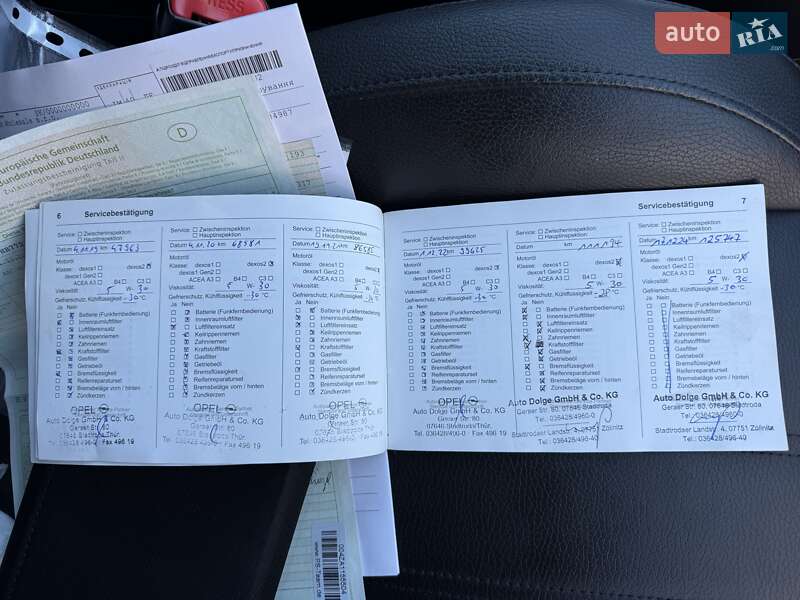 PRESS
auto RIA
.com
Europäische Gemeinschaft
Bundesrepublik Deutschland
D
Zulassungsbescheinigung Teil II
6 Servicebestätigung
Service: Zwischeninspektion
Hauptinspektion
Datum 4.11.19 km 47363
Motoröl
Klasse: dexos1 dexos2
dexos1 Gen2
ACEA A3 B4 C3
Viskosität: 5 W- 30
Gefrierschutz, Kühlflüssigkeit -30°C
Ja Nein
Batterie (Funkfernbedienung)
Innenraumluftfilter
Luftfiltereinsatz
Keilrippenriemen
Zahnriemen
Kraftstofffilter
Gasfilter
Getriebeöl
Bremsflüssigkeit
Reifenreparaturset
Bremsbeläge vorn / hinten
Zündkerzen
OPEL
Auto Dolge GmbH & Co. KG
Geraer Str. 60
07646 Stadtroda/Thür.
Tel.: 036428/496-0 Fax 496 19
Service: Zwischeninspektion
Hauptinspektion
Datum 4.11.20 km 68581
Motoröl
Klasse: dexos1 dexos2
dexos1 Gen2
ACEA A3 B4 C3
Viskosität: 5 W- 30
Gefrierschutz, Kühlflüssigkeit -30°C
Ja Nein
Batterie (Funkfernbedienung)
Innenraumluftfilter
Luftfiltereinsatz
Keilrippenriemen
Zahnriemen
Kraftstofffilter
Gasfilter
Getriebeöl
Bremsflüssigkeit
Reifenreparaturset
Bremsbeläge vorn / hinten
Zündkerzen
OPEL
Auto Dolge GmbH & Co. KG
Geraer Str. 60
07646 Stadtroda/Thür.
Tel.: 036428/496-0 Fax 496 19
Service: Zwischeninspektion
Hauptinspektion
Datum km
Motoröl
Klasse: dexos1 dexos2
dexos1 Gen2
ACEA A3 B4 C3
Viskosität: 5 W- 30
Gefrierschutz, Kühlflüssigkeit
Ja Nein
Batterie (Funkfernbedienung)
Innenraumluftfilter
Luftfiltereinsatz
Keilrippenriemen
Zahnriemen
Kraftstofffilter
Gasfilter
Getriebeöl
Bremsflüssigkeit
Reifenreparaturset
Bremsbeläge vorn / hinten
Zündkerzen
OPEL
Auto Dolge GmbH & Co. KG
Geraer Str. 60
Tel.: 036428/496-0 Fax 496 19
Servicebestätigung 7
Service: Zwischeninspektion
Hauptinspektion
Datum 1.12.22 km 99625
Motoröl
Klasse: dexos1 dexos2
dexos1 Gen2
ACEA A3 B4 C3
Viskosität: 5 W- 30
Gefrierschutz, Kühlflüssigkeit -30°C
Ja Nein
Batterie (Funkfernbedienung)
Innenraumluftfilter
Luftfiltereinsatz
Keilrippenriemen
Zahnriemen
Kraftstofffilter
Gasfilter
Getriebeöl
Bremsflüssigkeit
Reifenreparaturset
Bremsbeläge vorn / hinten
Zündkerzen
OPEL
Auto Dolge GmbH & Co. KG
Geraer Str. 60
07646 Stadtroda/Thür.
Tel. 036428/496-0 Fax 496 19
Service: Zwischeninspektion
Hauptinspektion
Datum km 111194
Motoröl
Klasse: dexos1 dexos2
dexos1 Gen2
ACEA A3 B4 C3
Viskosität: 5 W- 30
Gefrierschutz, Kühlflüssigkeit -28°C
Ja Nein
Batterie (Funkfernbedienung)
Innenraumluftfilter
Luftfiltereinsatz
Keilrippenriemen
Zahnriemen
Kraftstofffilter
Gasfilter
Getriebeöl
Bremsflüssigkeit
Reifenreparaturset
Bremsbeläge vorn / hinten
Zündkerzen
Auto Dolge GmbH & Co. KG
Geraer Str. 60, 07646 Stadtroda
Tel.: 036428/496-0
Stadtrodaer Landstr. 4, 07751 Zöllnitz
Tel.: 036428/496-40
Service: Zwischeninspektion
Hauptinspektion
Datum km 125747
Motoröl
Klasse: dexos1 dexos2
dexos1 Gen2
ACEA A3 B4 C3
Viskosität: 5 W- 30
Gefrierschutz, Kühlflüssigkeit °C
Ja Nein
Batterie (Funkfernbedienung)
Innenraumluftfilter
Luftfiltereinsatz
Keilrippenriemen
Zahnriemen
Kraftstofffilter
Gasfilter
Getriebeöl
Bremsflüssigkeit
Reifenreparaturset
Bremsbeläge vorn / hinten
Zündkerzen
Auto Dolge GmbH & Co. KG
Geraer Str. 60, 07646 Stadtroda
Tel.: 036428/496-0
Stadtrodaer Landstr. 4, 07751 Zöllnitz
Tel.: 036428/496-40